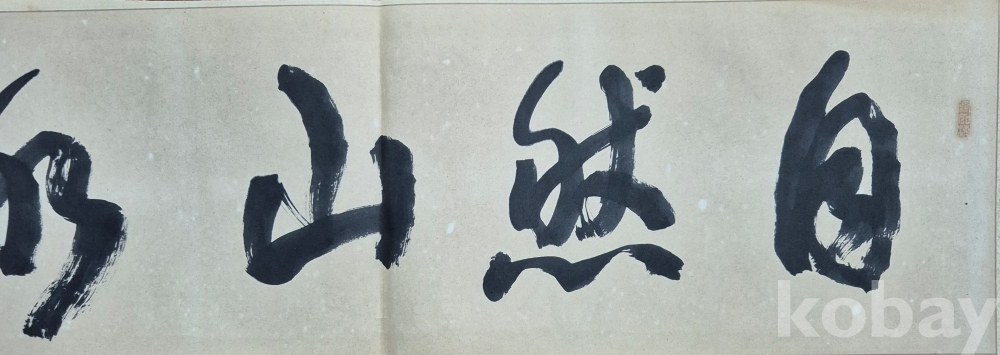 自然山
kobay